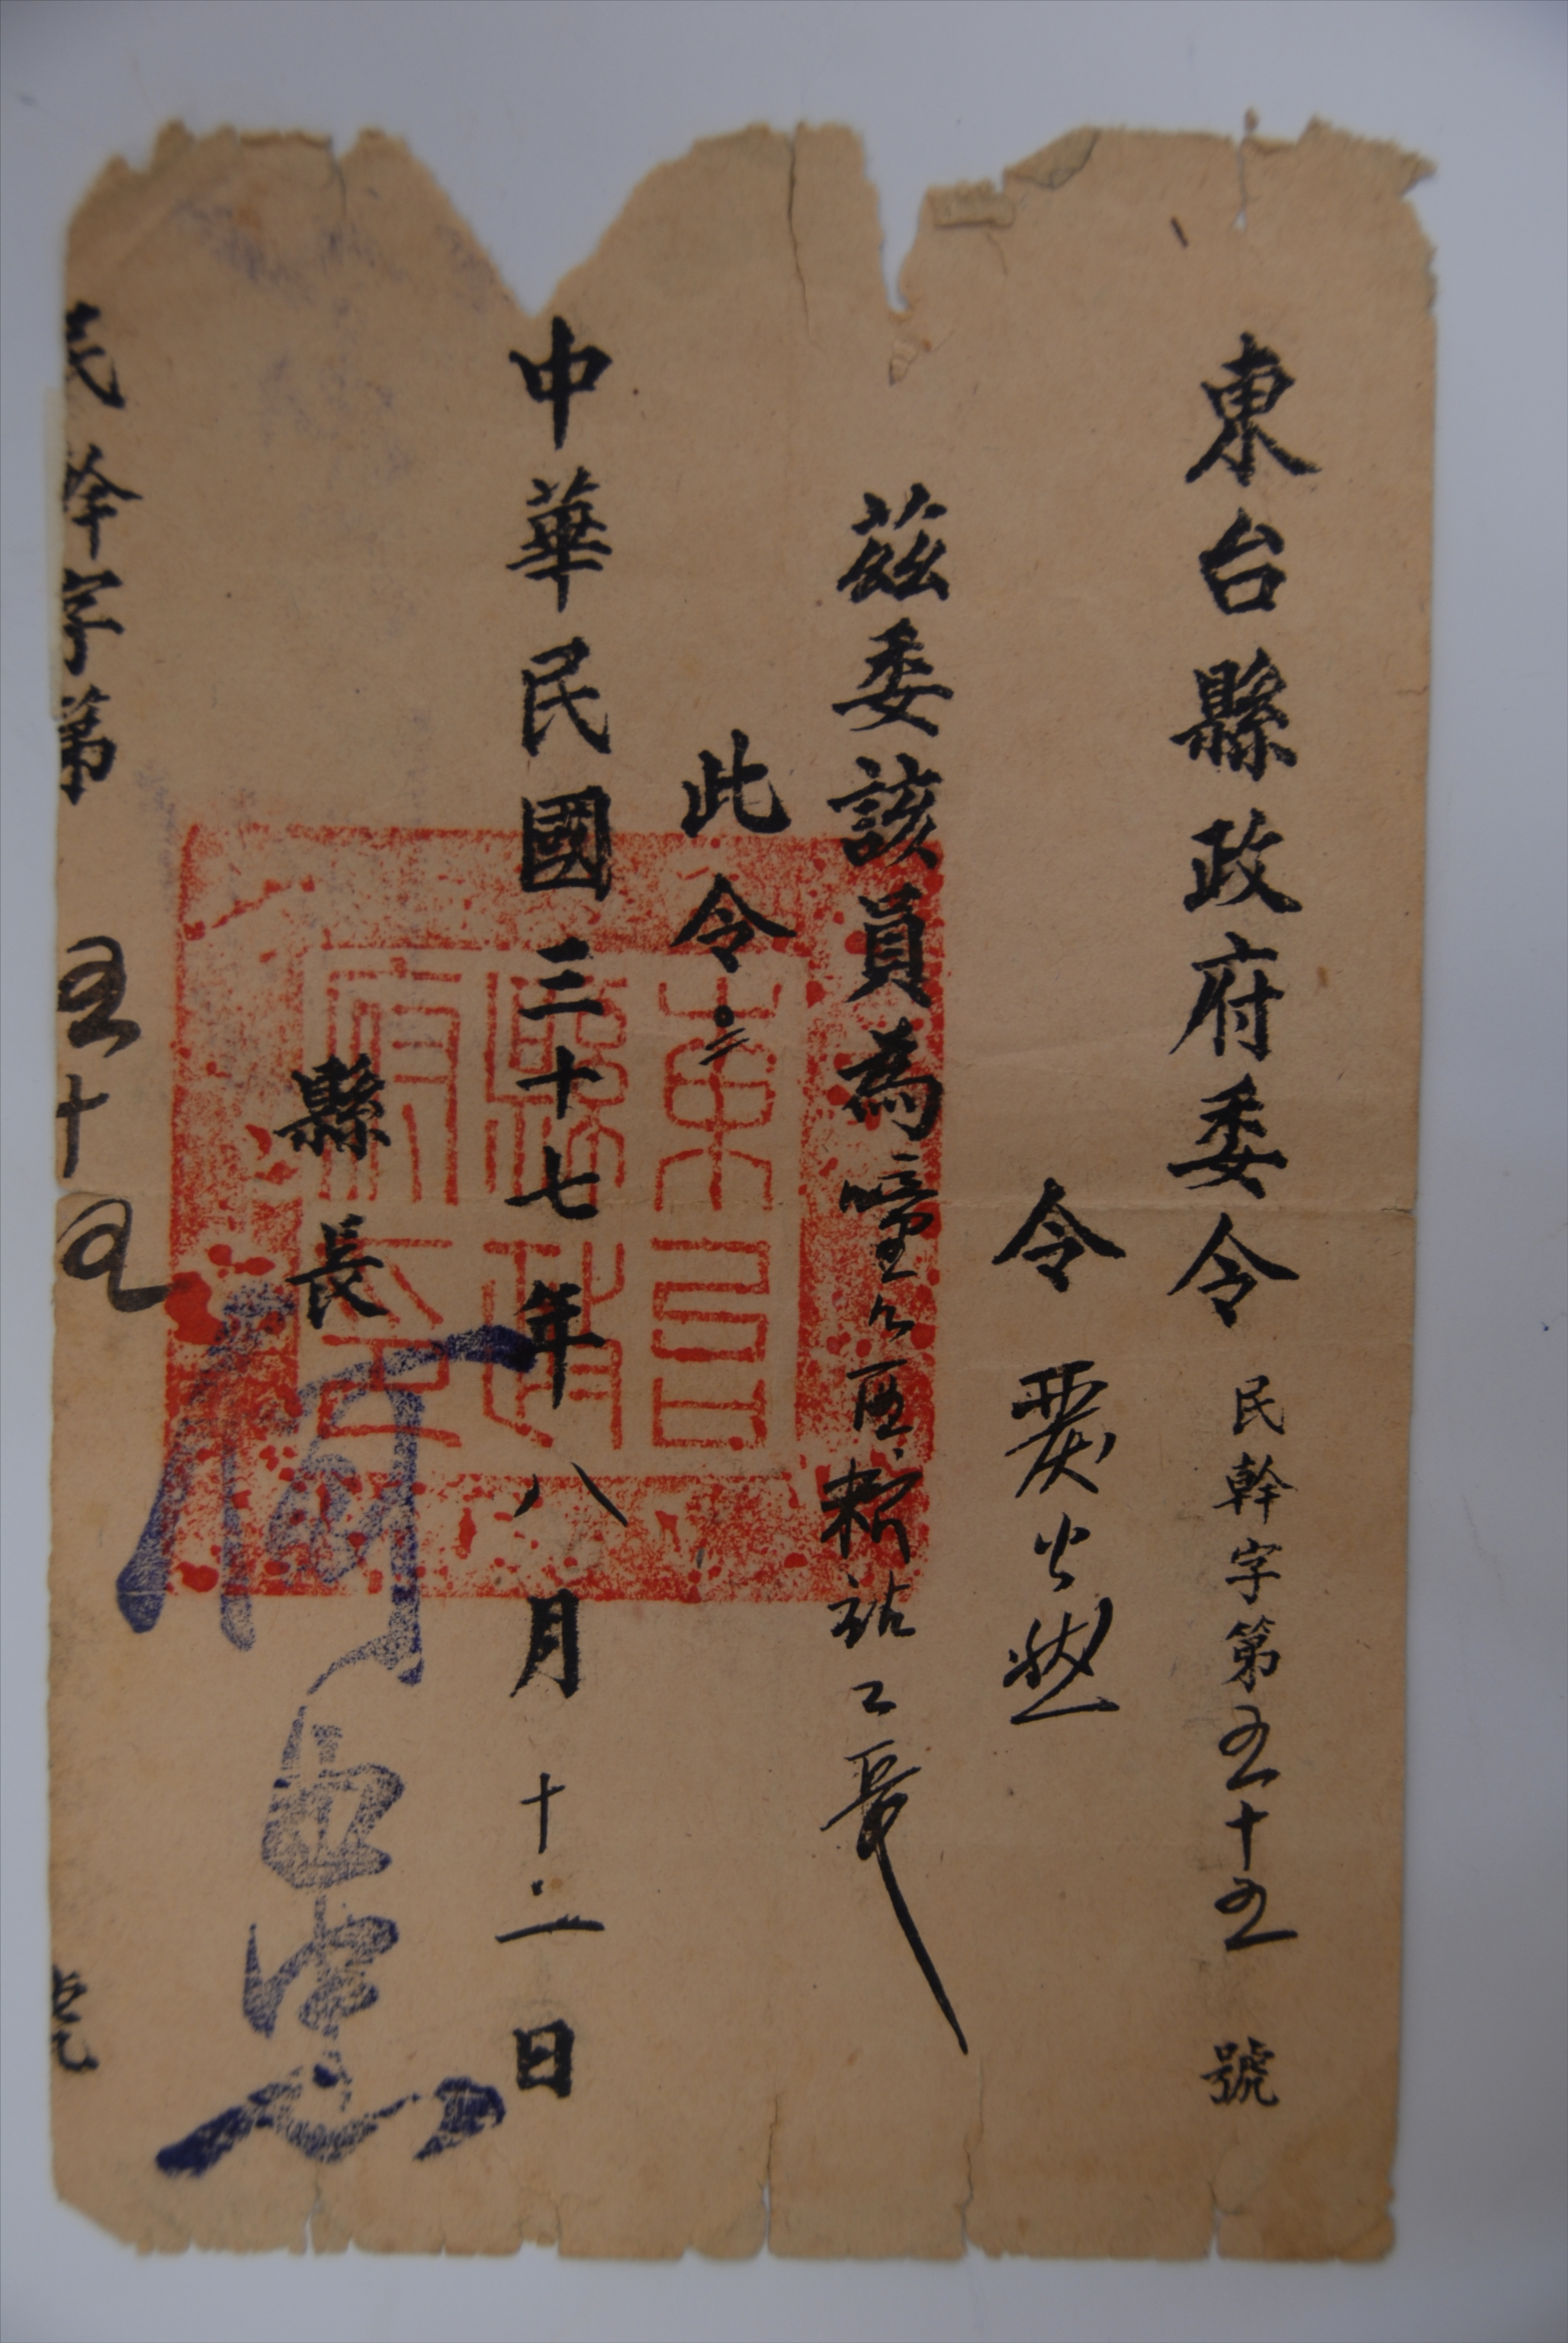 東台縣政府委令 民幹字第五十五號
令
茲委該員為 區 站工長
此令
中華民國三十七年八月十二日
縣長
民幹字第 五十五 號
東台縣政府印